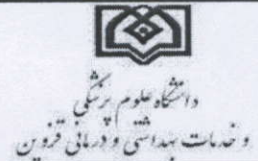 دانشگاه علوم پزشکی
و خدمات بهداشتی و درمانی قزوین